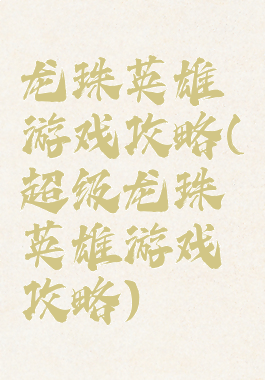 龙珠英雄
游戏攻略(
超级龙珠
英雄游戏
攻略)